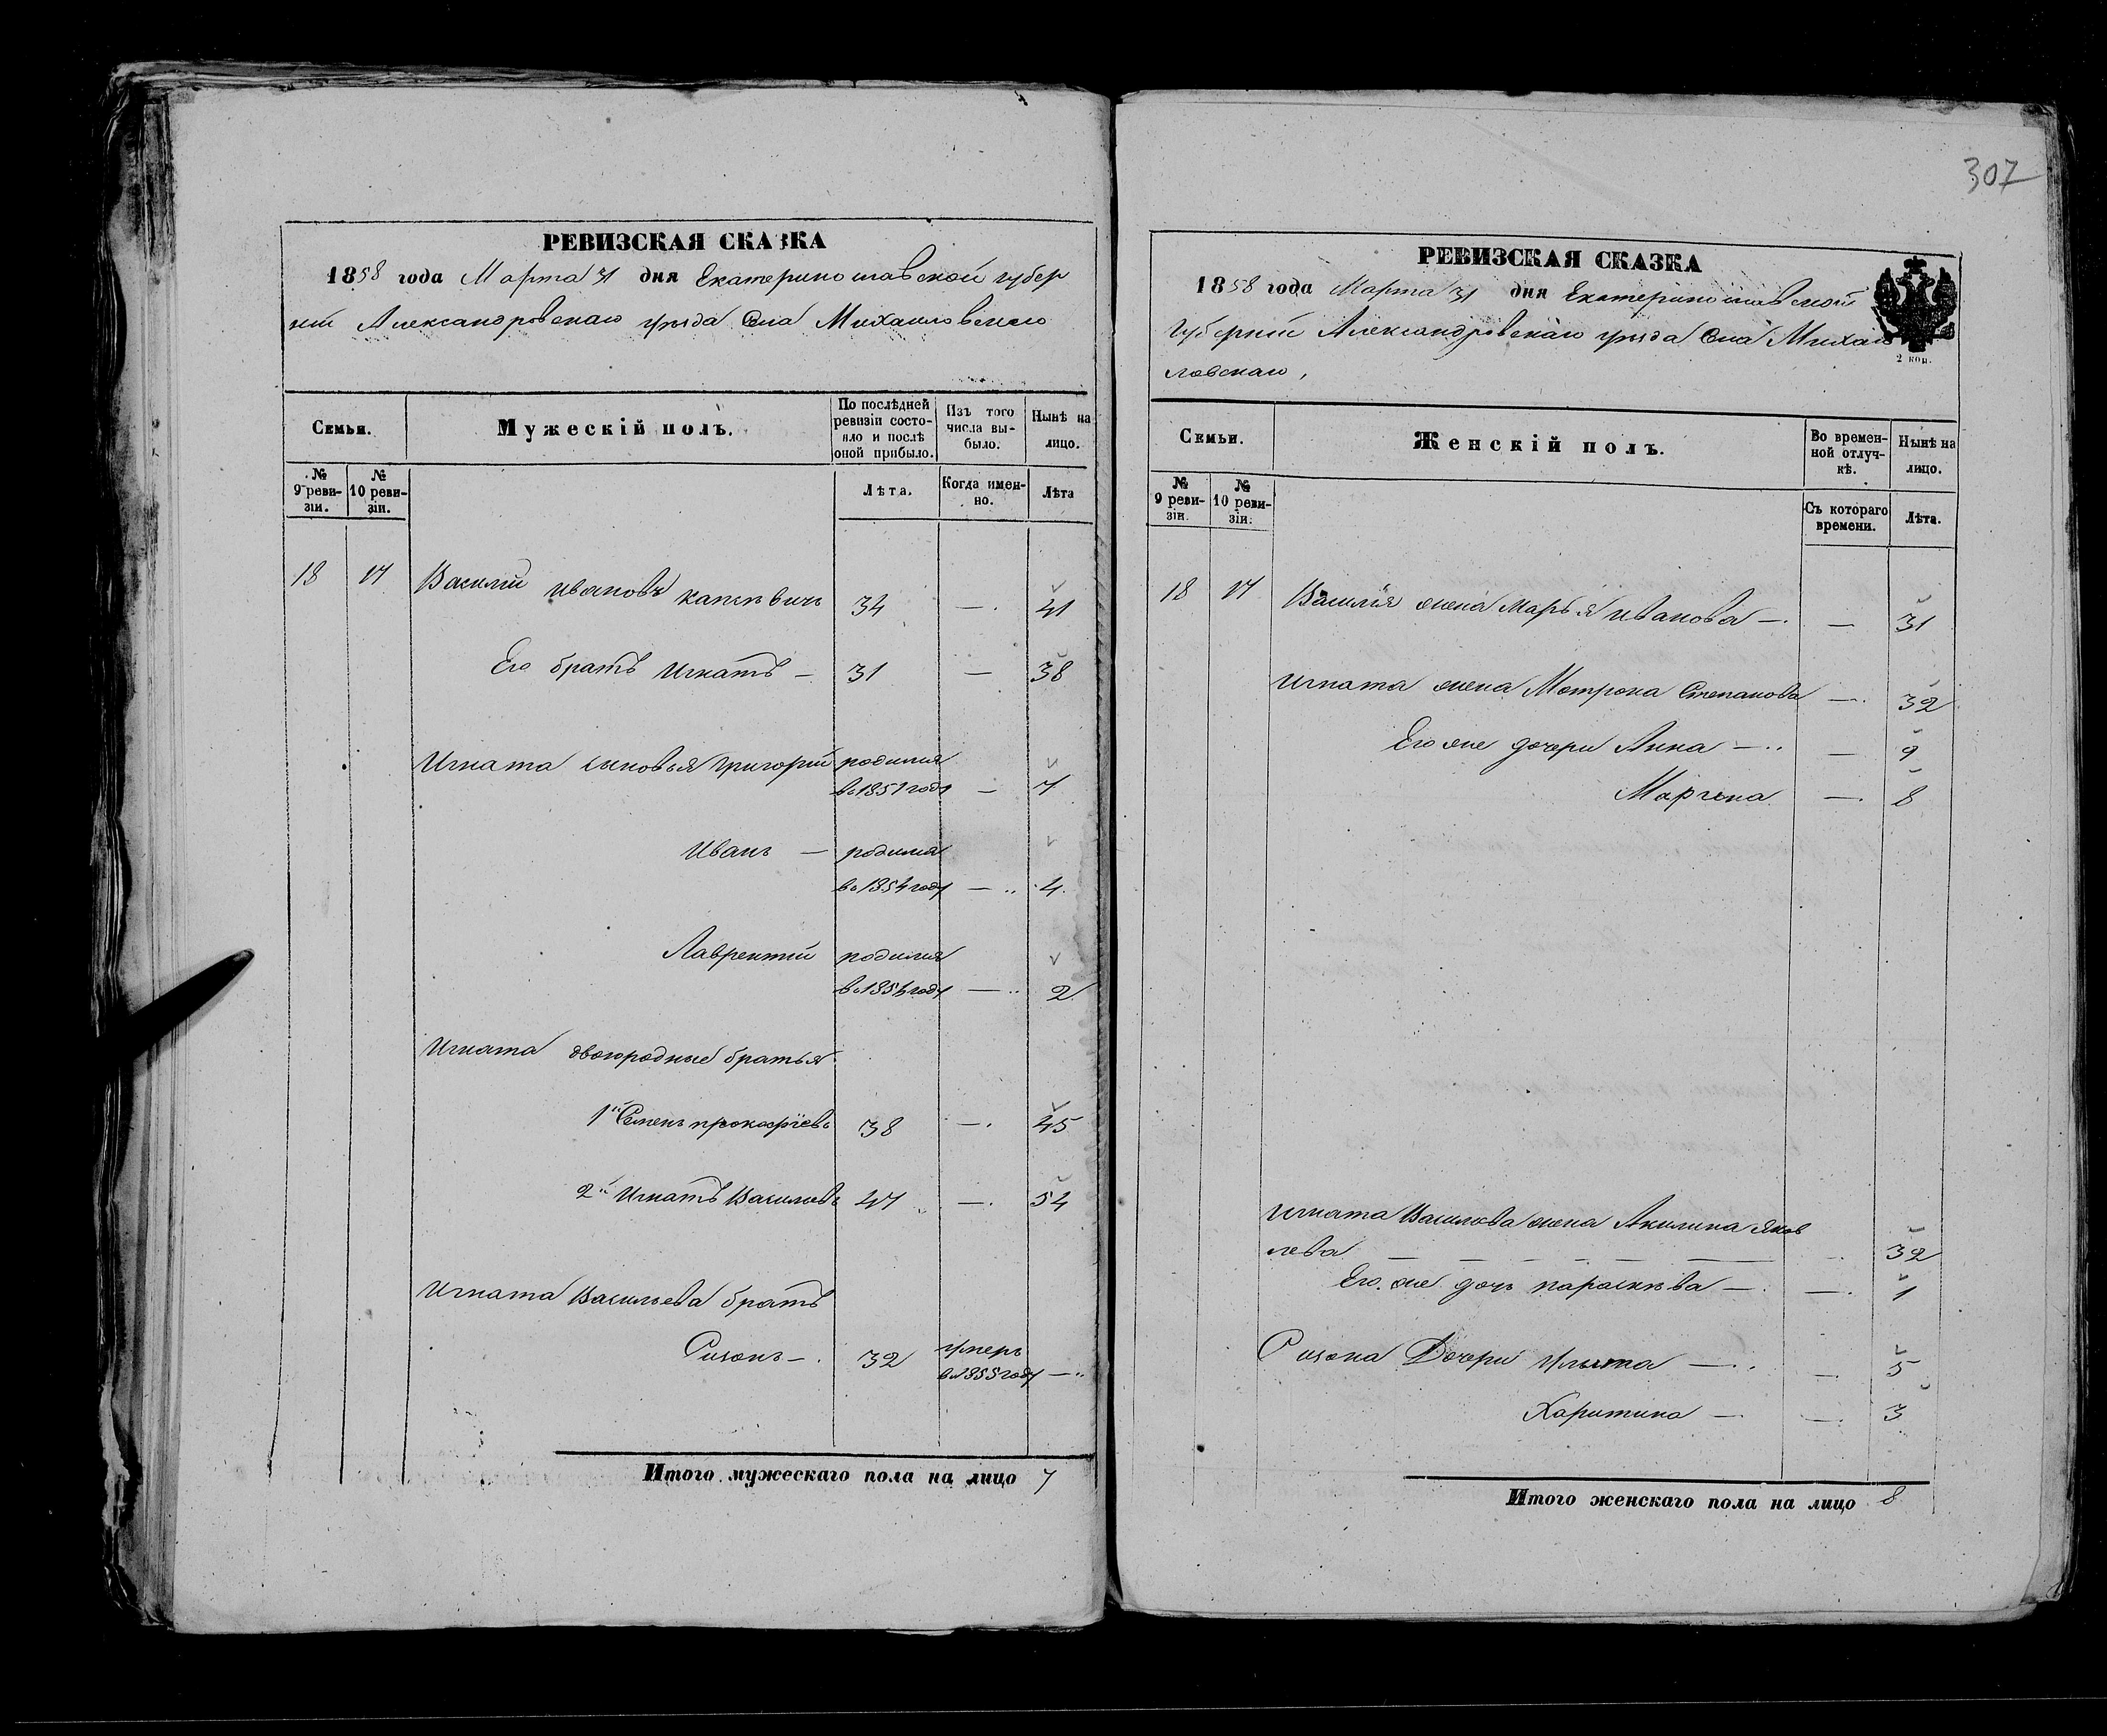 307
РЕВИЗСКАЯ СКАЗКА
1858 года Марта 31 дня Екатеринославской губер
нии Александровскаго уезда Села Михайловскаго
Семьи.
Мужескій полъ.
По послѣдней ревизіи состояло и послѣ оной прибыло.
Изъ того числа выбыло.
Нынѣ на лицо.
№ 9 ревизіи.
№ 10 ревизіи.
Лѣта.
Когда именно.
Лѣта
18 17 Василий Ивановъ 34 —. 41
Его братъ Игнатъ — 31 — 38
Игната сыновья Григорий родился
во 1851 году — 7
Иванъ — родился
во 1854 году — 4
Лаврентий родился
году — 2
Игната двоюродные братья
1й Семенъ Прокофіевъ 38 —. 45
2й Игнатъ Василиевъ 47 —. 54
Игната Васильева братъ
32 умеръ
во 1855 году —
Итого мужескаго пола на лицо 7
РЕВИЗСКАЯ СКАЗКА
1858 года Марта 31 дня Екатеринославской
Губернии Александровскаго уезда Села Михай
ловскаго,
2 коп.
Семьи.
Женскій полъ.
Во временной отлучкѣ.
Нынѣ на лицо.
№ 9 ревизіи.
№ 10 ревизіи.
Съ котораго времени.
Лѣта.
18 17 Василія жена Марья Иванова —. — 31
Игната жена Мотрона Степанова —. 32
Его же дочери Анна —.. — 9
—. 8
Игната Василова жена Акилина Яков
лева — 32
Его же дочь Параскева —. —. 1
Дочери Улыта —. — 5
Харитина —. —. 3
Итого женскаго пола на лицо 8